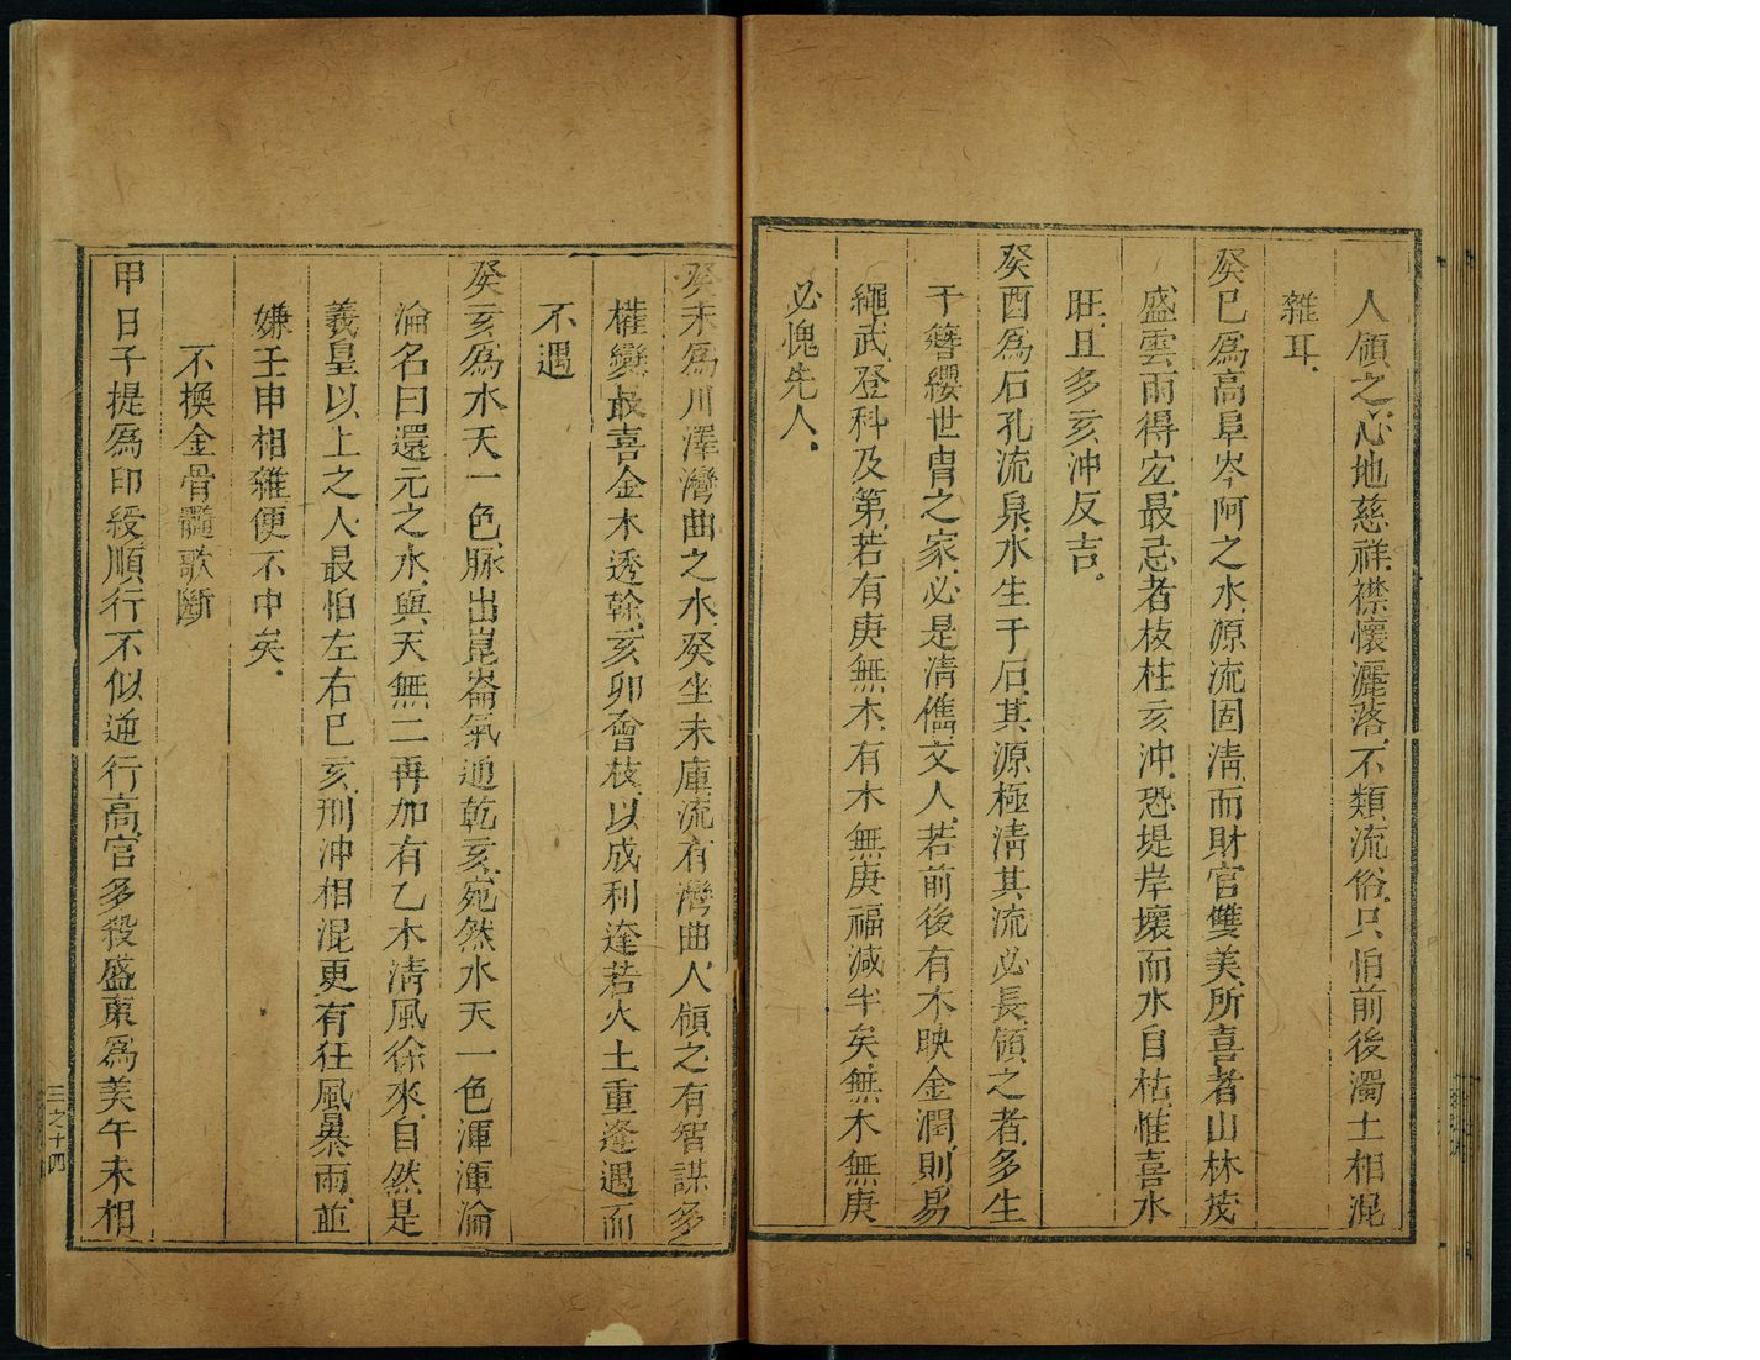 人領之心地慈祥襟懷灑落不類流俗只怕前後濁土相混
雜耳
癸巳爲高阜岑阿之水源流固清而財官雙美所喜者山林茂
盛雲雨得宜最忌者枝柱亥沖恐堤岸壞而水自枯惟喜水
旺且多亥沖反吉
癸酉爲石孔流泉水生于石其源極清其流必長領之者多生
于簪纓世胄之家必是清儁文人若前後有木映金潤則易
繩武登科及第若有庚無木有木無庚福減半矣無木無庚
必愧先人
癸未爲川澤灣曲之水癸坐未庫流有灣曲人領之有智謀多
權變最喜金木透幹亥卯會枝以成利達若火土重逢遇而
不遇
癸亥爲水天一色脉出崑崙氣通乾亥宛然水天一色渾渾淪
淪名曰還元之水與天無二再加有乙木清風徐來自然是
羲皇以上之人最怕左右巳亥刑沖相混更有狂風暴雨並
嫌壬申相雜便不中矣
不換金骨髓歌斷
甲日子提爲印綬順行不似逆行高官多殺盛東爲美午未相
三之十四